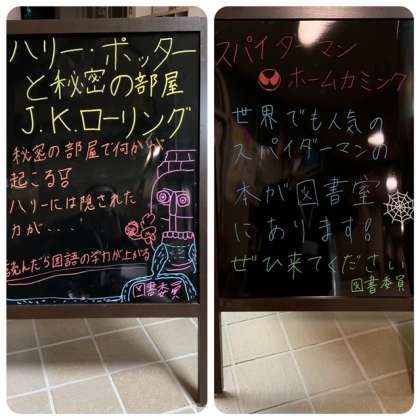 ハリー・ポッター
と秘密の部屋
J.K.ローリング
秘密の部屋で何かが
起こる!?
ハリーには隠された
力が・・・
読んだら国語の学力が上がる
図書委員
スパイダーマン
ホームカミング
世界でも人気の
スパイダーマンの
本が図書室
にあります!
ぜひ来てください
図書委員